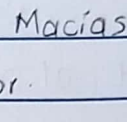 Macías
or.